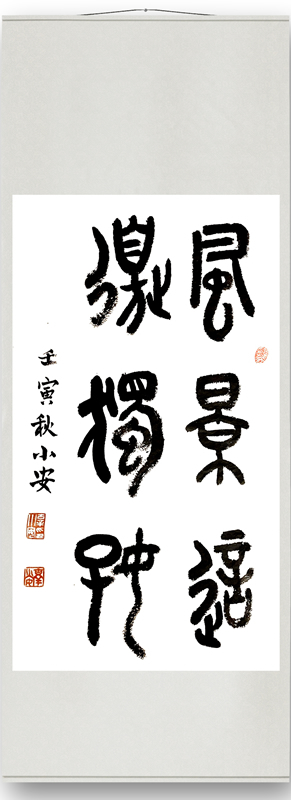 風景這
邊獨好
壬寅秋小安